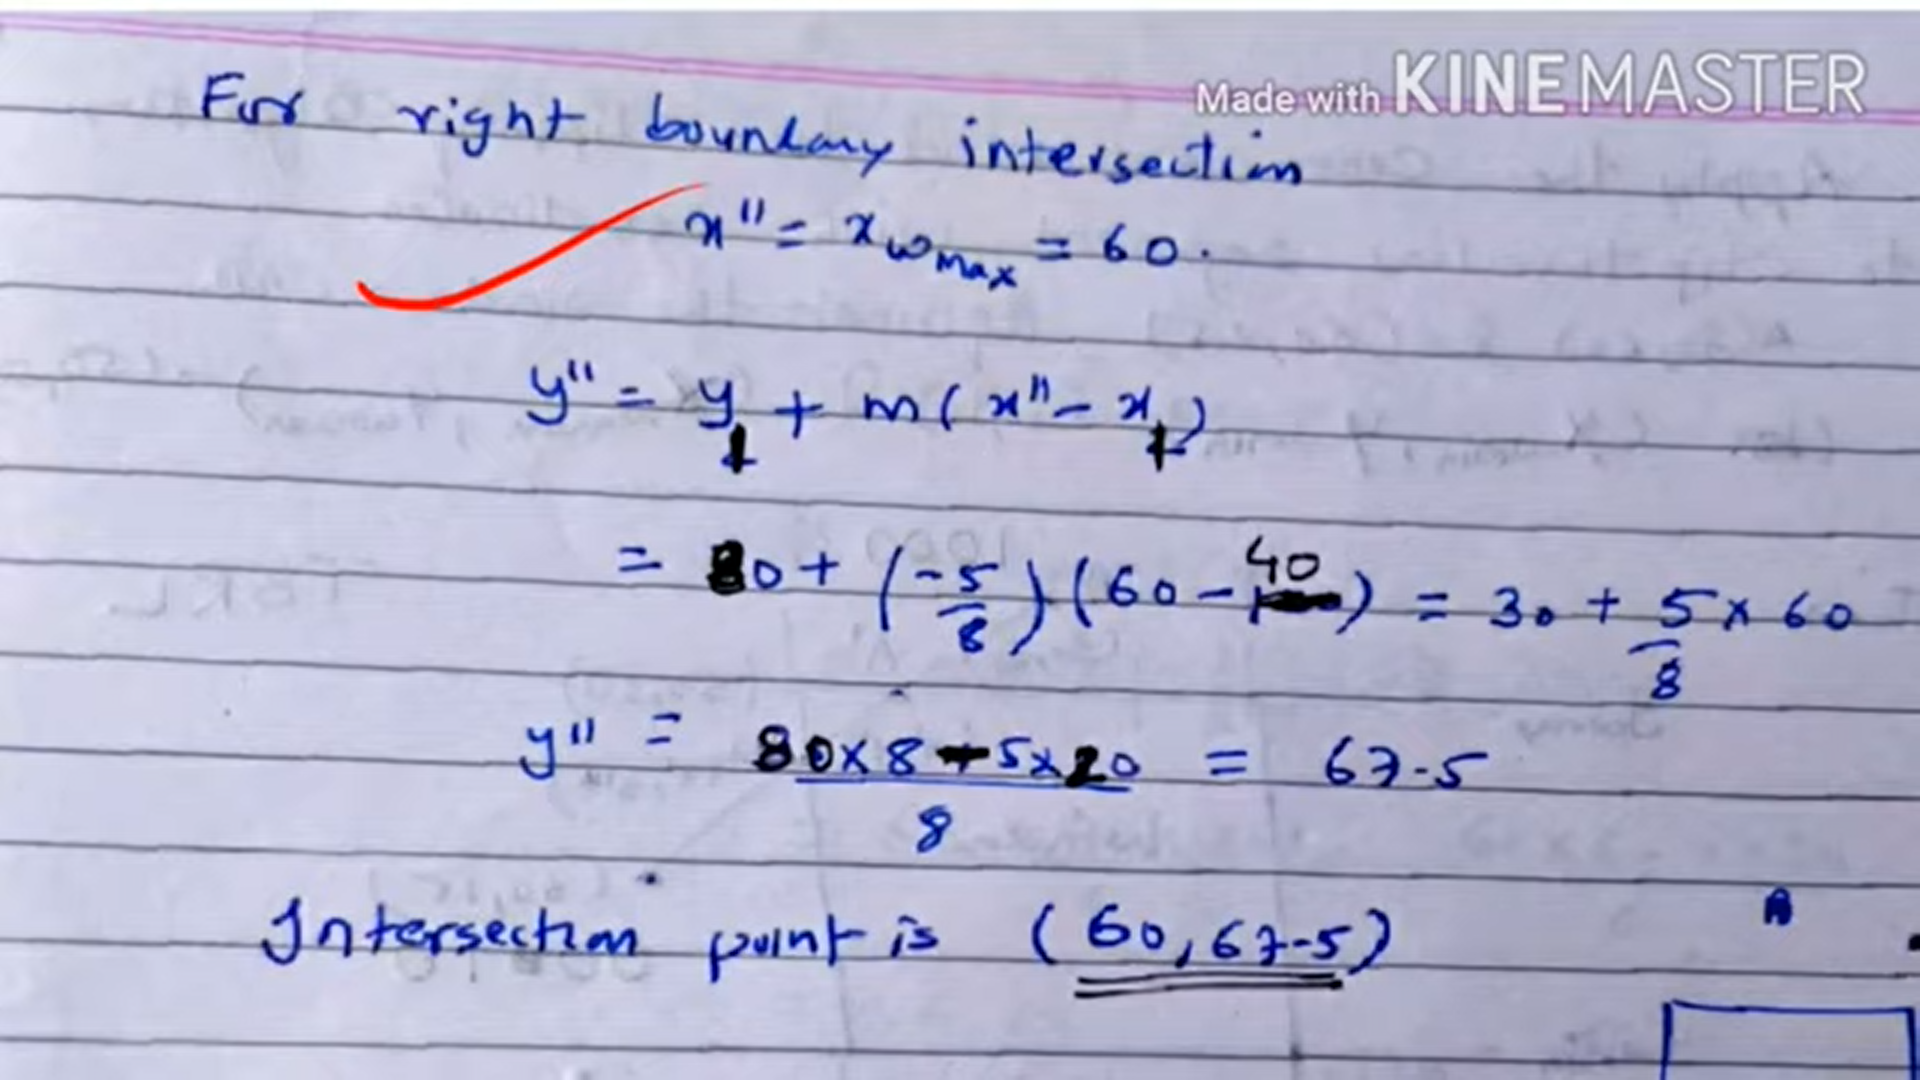 Made with KINEMASTER
For right boundary intersection
x'' = x w max = 60.
y'' = y1 + m(x'' - x1)
= 80 + (-5/8)(60 - 40) = 30 + 5/8 x 60
y'' = 80x8-5x20/8 = 67.5
Intersection point is (60, 67.5)
A